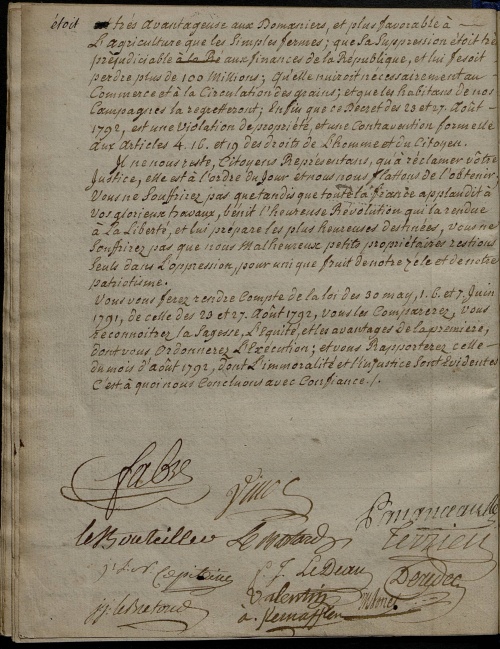 étoit très avantageuse aux Domaniers, et plus favorable à
L'agriculture que les Simples fermes; que Sa Suppression étoit très
préjudiciable à la Re aux finances de la République, et lui fesoit
perdre plus de 100 Millions; qu'elle nuiroit nécessairement au
Commerce et à la Circulation des grains; et que les habitans de nos
Campagnes la regretteront; Enfin que ce Decret des 23 et 27. Août
1792, est une Violation de propriété, et une Contravention formelle
aux articles 4. 16. et 19 des droits de L'homme et du Citoyen.
Il ne nous reste, Citoyens Représentans, qu'à réclamer vôtre
Justice, elle est à l'ordre du Jour et nous nous flattons de l'obtenir.
Vous ne Souffrirez pas que tandis que toute la france applaudit à
Vos glorieux travaux, bénit l'heureuse Révolution qui la rendue
à La Liberté, et lui prépare les plus heureuses destinées, vous ne
Souffrirez pas que nous Malheureux petits propriétaires restions
Seuls dans L'oppression, pour unique fruit de notre zele et de notre
patriotisme.
Vous vous ferez rendre Compte de la loi des 30 may, 1. 6. et 7. Juin
1791, de celle des 23 et 27. Août 1792, vous les Comparerez, vous
reconnoitrez la Sagesse, L'Equité, et les avantages de la première,
dont vous Ordonnerez L'Exécution; et vous Rapporterez celle
du mois d'août 1792, dont L'immoralité et l'injustice Sont Evidentes
C'est à quoi nous Concluons avec Confiance./.
fabre
le Bouteiller Terrien
Capitaine J. LeDeau
jj. le Breton Valentin
à. Kernafflen